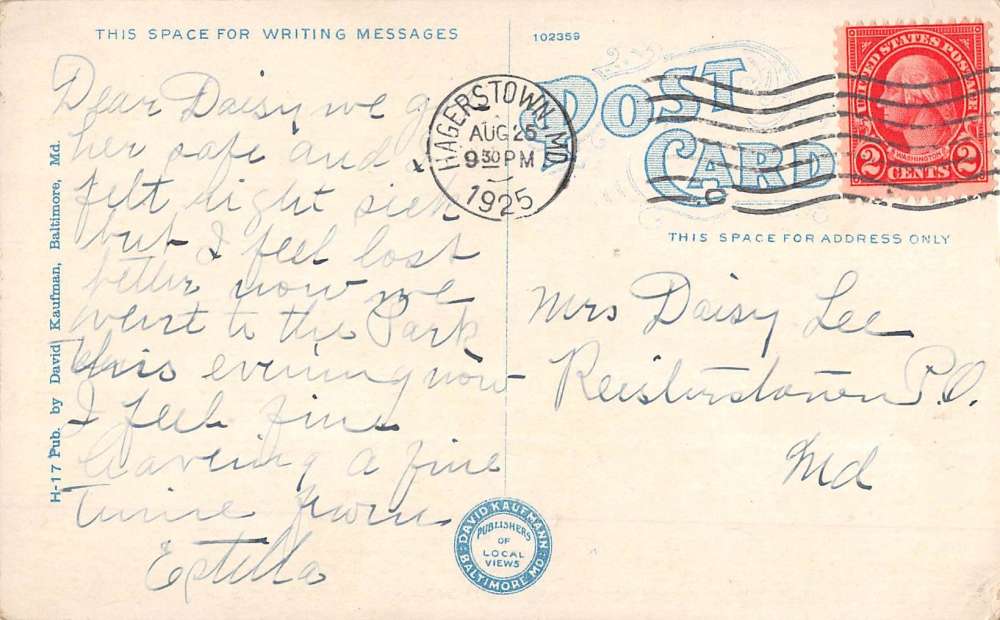 THIS SPACE FOR WRITING MESSAGES
Dear Daisy we g
her safe and
felt light sick
but I feel lost
better now we
went to the Park
this evening now
I feel fine
haveing a fine
time from
Estella
H-17 Pub. by David Kaufman, Baltimore, Md.
102359
POST
CARD
HAGERSTOWN, MD.
AUG 26
9 30 PM
1925
UNITED STATES POSTAGE
WASHINGTON
2 CENTS 2
THIS SPACE FOR ADDRESS ONLY
Mrs Daisy Lee
Reisterstown P.O.
Md
DAVID KAUFMANN
PUBLISHERS
OF
LOCAL
VIEWS
BALTIMORE MD